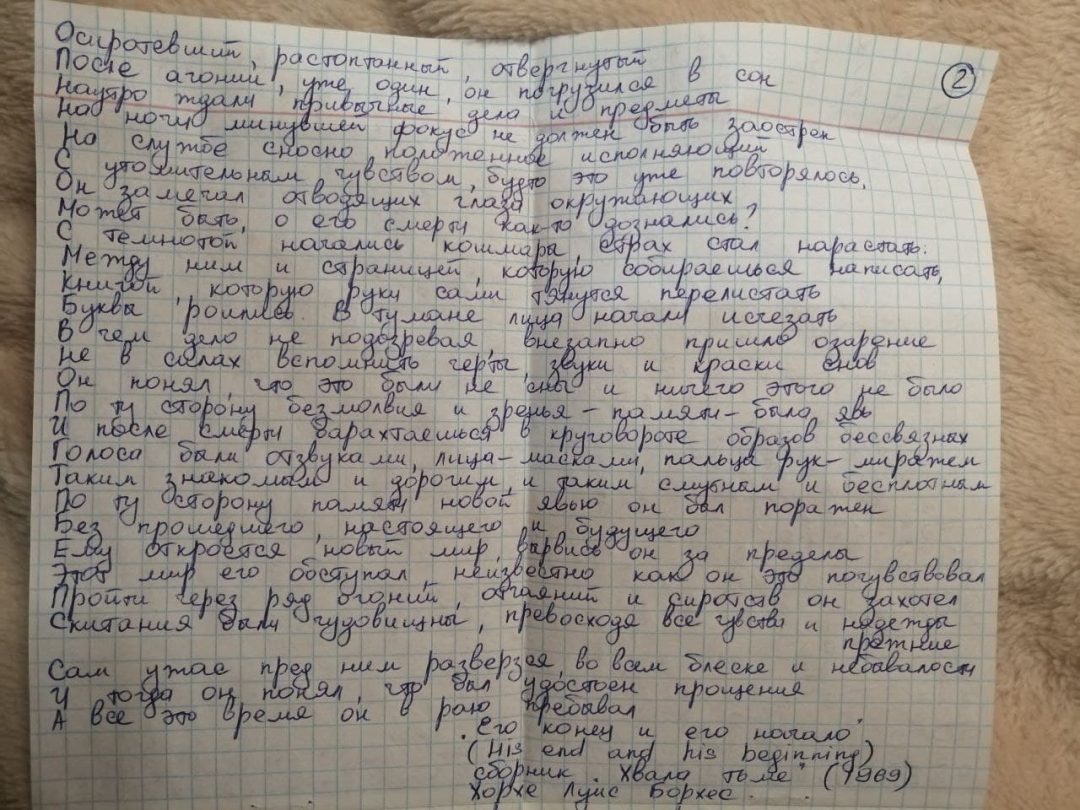 Осиротевший, растоптанный, отвергнутый
После агоний, уже один, он погрузился в сон
2
Наутро ждали привычные дела и предметы
На ночи минувшей фокус не должен быть заострен
На службе сносно положенное исполняющий
С утомительным чувством, будто это уже повторялось,
Он замечал отводящих глаза окружающих
Может быть, о его смерти как-то дознались?
С темнотой начались кошмары, страх стал нарастать.
Между ним и страницей, которую собираешься написать,
Книгой, которую руки сами тянутся перелистать
Буквы роились. В тумане лица начали исчезать
В чем дело не подозревая, внезапно пришло озарение
Не в силах вспомнить черты, звуки и краски снов
Он понял, что это были не сны и ничего этого не было
По ту сторону безмолвия и зренья - памяти - была явь
И после смерти барахтаешься в круговороте образов бессвязных
Голоса были отзвуками, лица - масками, пальцы рук - миражем
Таким знакомым и дорогим, и таким смутным и бесплотным
По ту сторону памяти новой явью он был поражен
Без прошедшего, настоящего и будущего
Ему откроется новый мир, вырвись он за пределы
Этот мир его обступал, неизвестно как он это почувствовал
Пройти через ряд агоний, отчаяний и сиротств он захотел
Скитания были чудовищны, превосходя все чувства и надежды
прежние
Сам ужас пред ним разверзся, во всем блеске и небывалости
И тогда он понял, что был удостоен прощения
А все это время он в раю пребывал
"Его конец и его начало"
(His end and his beginning)
сборник "Хвала тьме" (1969)
Хорхе Луис Борхес